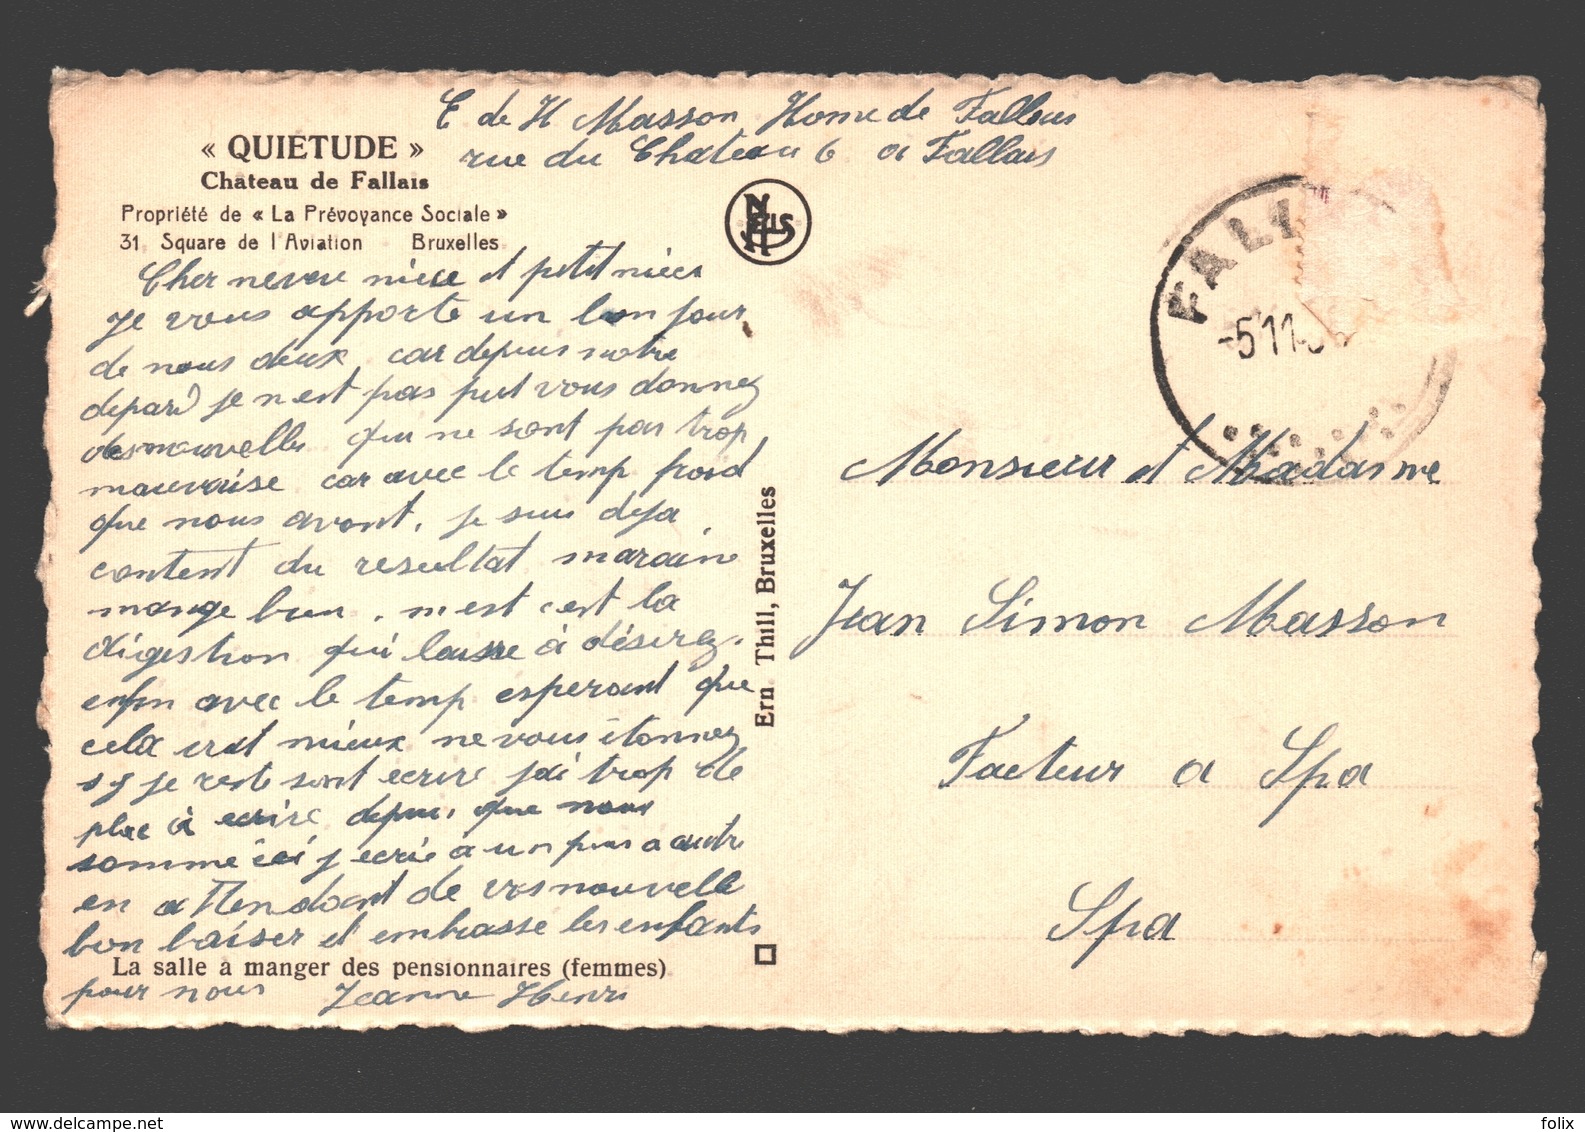 E de H Masson Home de Fallais
rue du Chateau 6 a Fallais
« QUIÉTUDE »
Château de Fallais
Propriété de « La Prévoyance Sociale »
31, Square de l'Aviation Bruxelles
NELS
FAL
-5 11
Cher neveu niece et petit nieces
je vous apporte un bon jour
de nous deux, car depuis notre
depard je n est pas put vous donnez
des nouvelles qui ne sont pas trop
mauvaise car avec le temp froid
que nous avont, je suis deja
content du resultat maraine
mange bien, m est c est la
digestion qui laisse à désirez.
enfin avec le temp esperant que
cela irat mieux ne vous étonnez
s y je reste sont ecrire j ai trop de
place à ecrire depuis que nous
somme ici j ecrie a un puis a autre
en attendant de vos nouvelle
bon baiser et embrasse les enfants
La salle à manger des pensionnaires (femmes)
pour nous Jeanne Henri
Ern. Thill, Bruxelles
Monsieur et Madame
Jean Simon Masson
Facteur a Spa
Spa
delcampe.net
folix